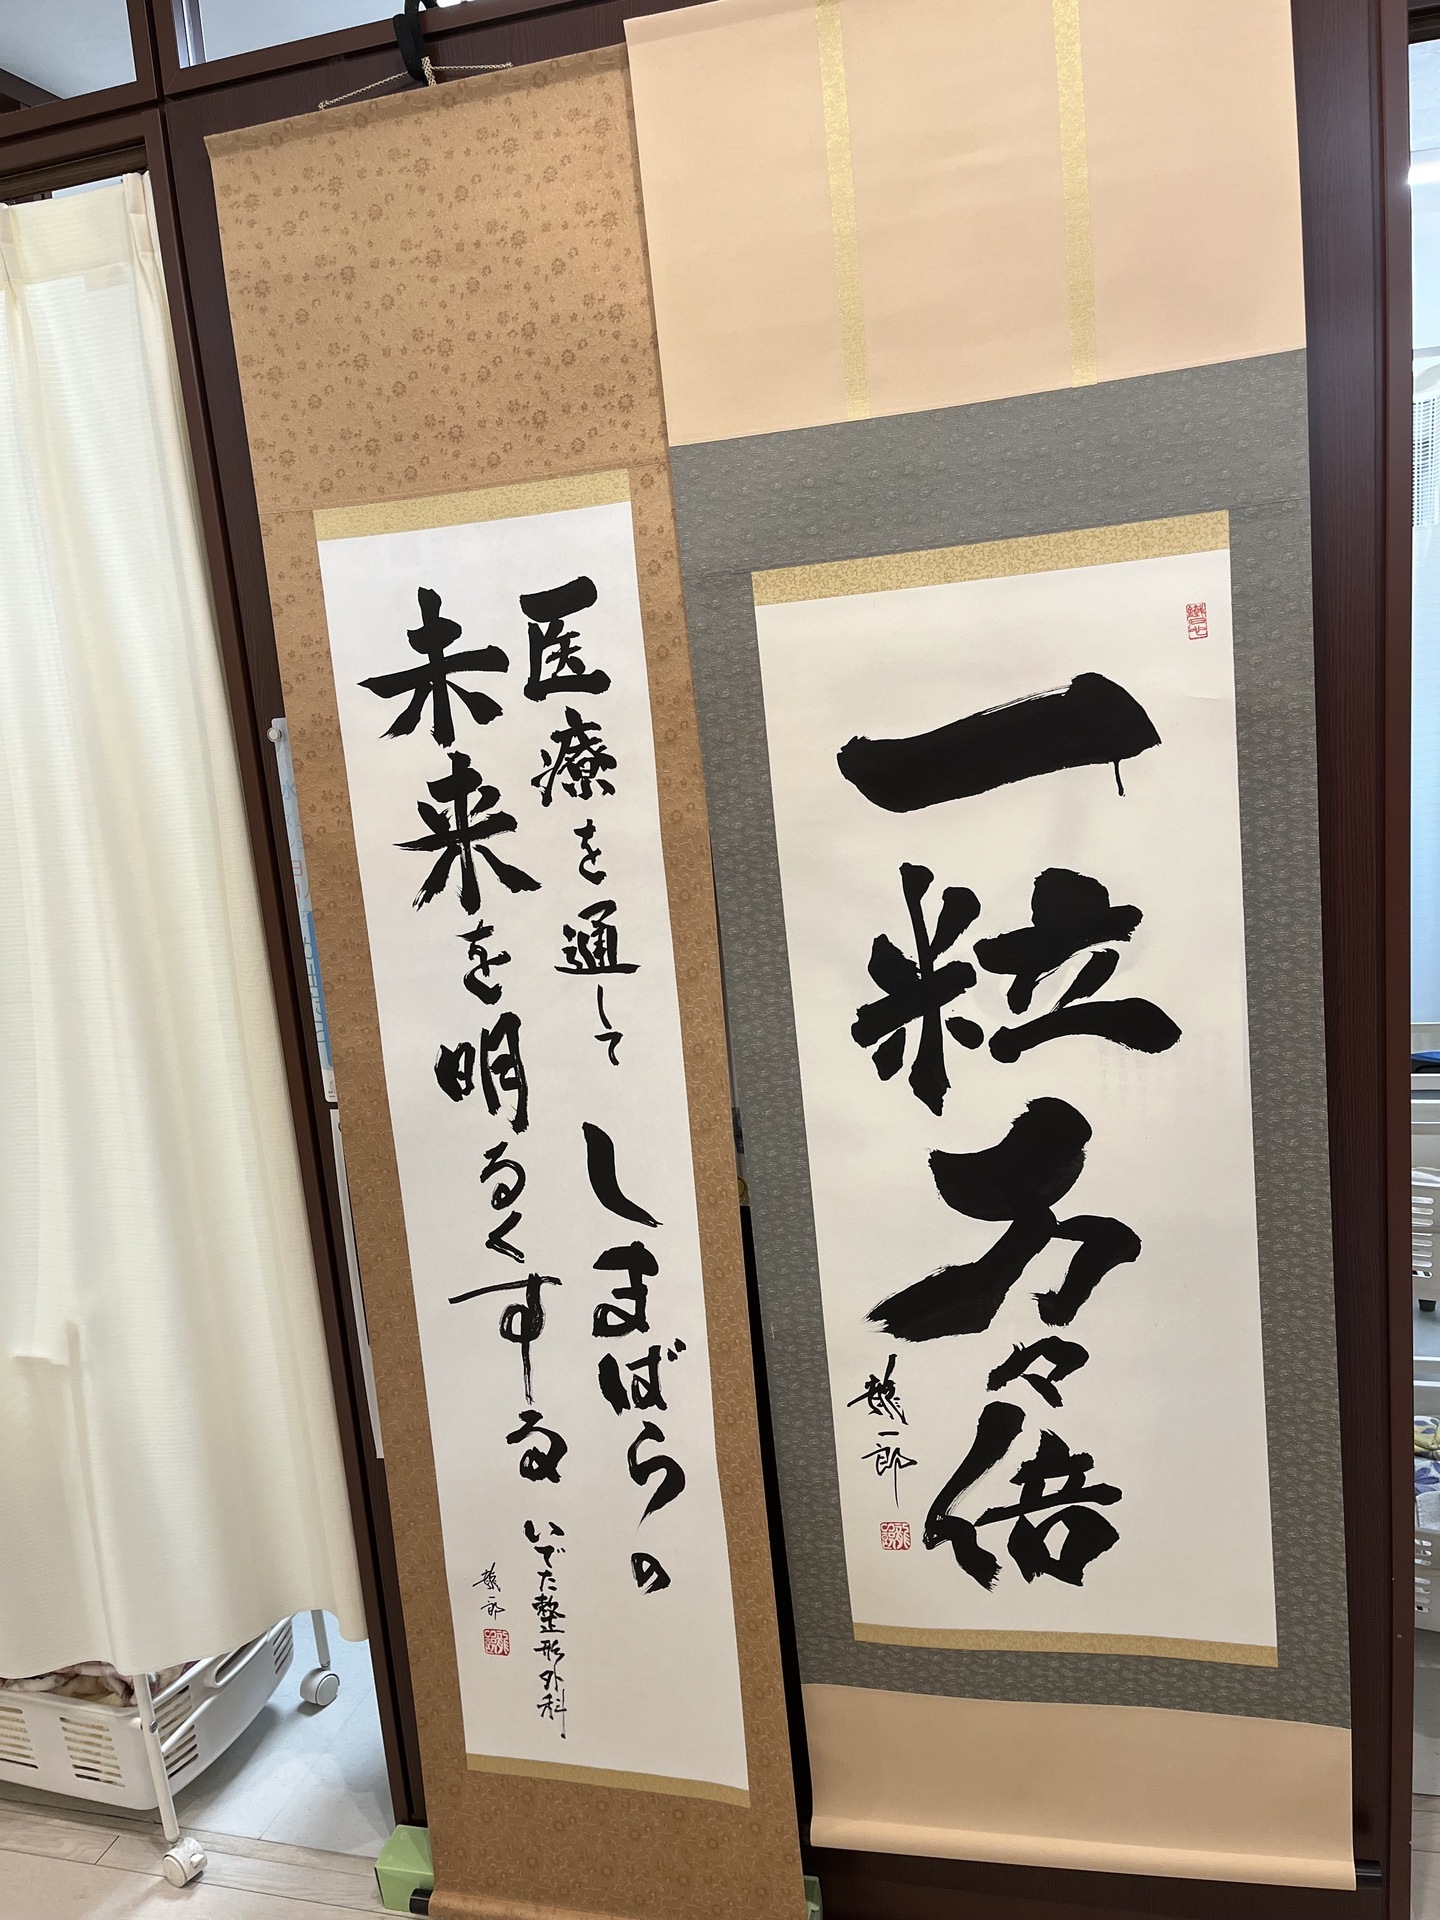 一粒万々倍
龍一郎
医療を通して しまばらの
未来を明るくする
いでた整形外科
龍一郎